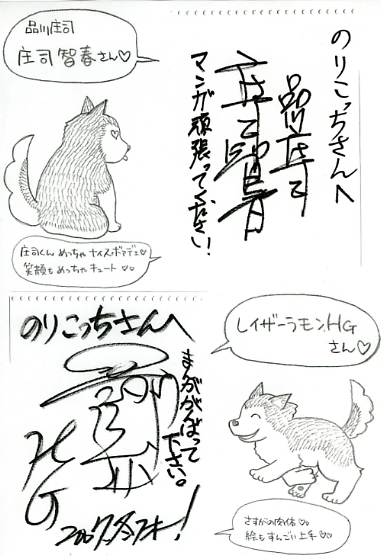 品川庄司
庄司 智春さん♡
のりこっちさんへ
品川庄司
庄司智春
マンガ頑張ってください!
庄司くん めっちゃ ナイスボディ♡
笑顔も めっちゃ キュート♡♡
のりこっちさんへ
まんががんばって
下さい。
HG
2007.冬
レイザーラモンHG
さん♡
さすがの肉体♡♡
絵も すんごい 上手♡